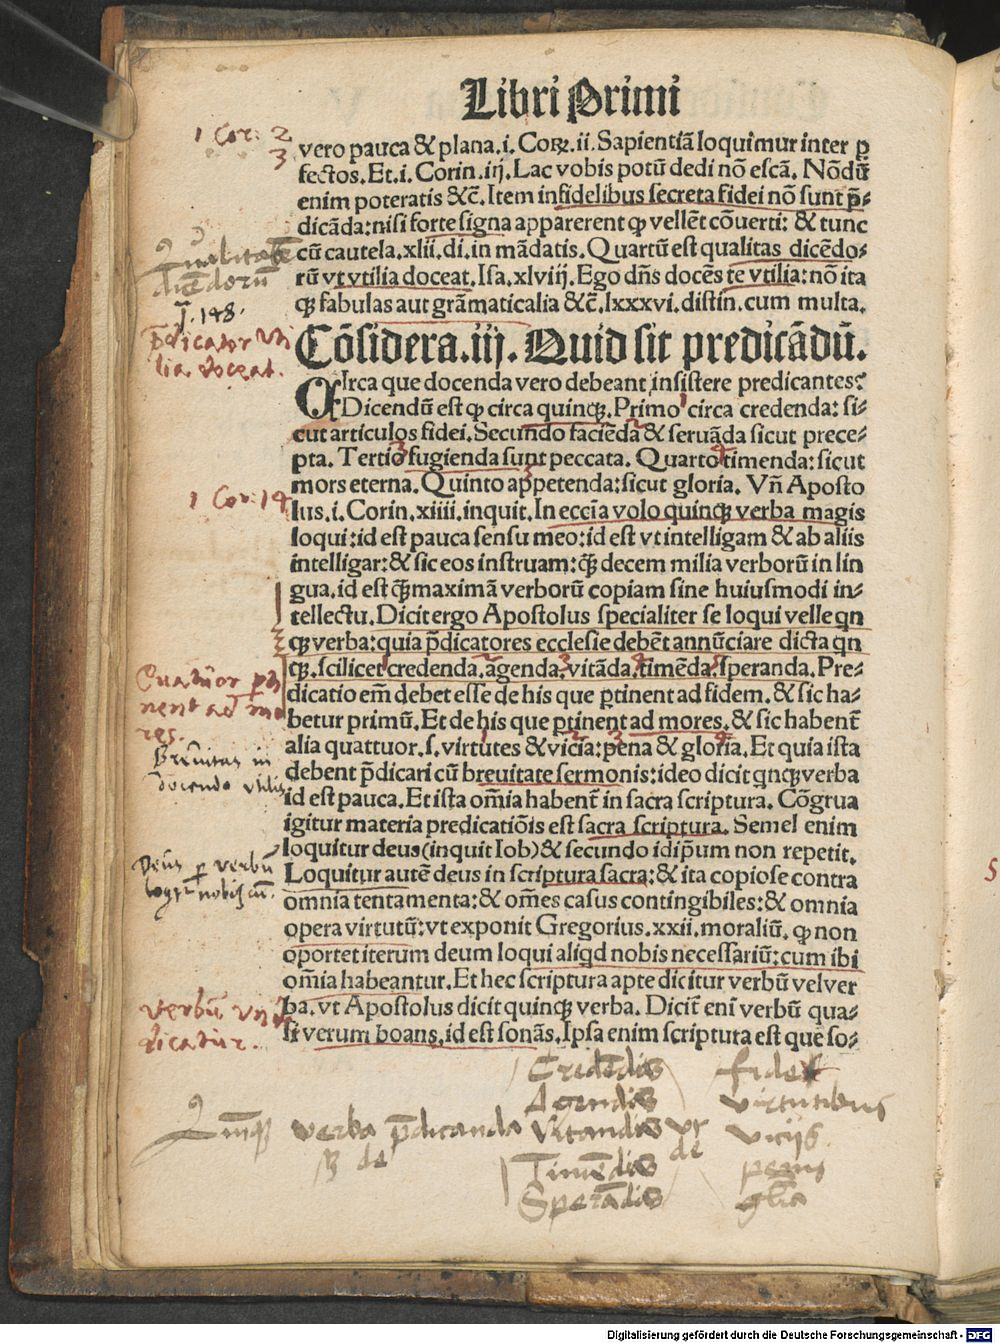 Libri Primi
1 Cor: 2
3
vero pauca & plana. i. Coꝝ. ii. Sapientiā loquimur inter ꝑ
fectos. Et. i. Corin. iij. Lac vobis potū dedi nō escā. Nōdū
enim poteratis &c̄. Item infidelibus secreta fidei nō sunt p̄-
dicāda: nisi forte signa apparerent ꝙ vellēt cōuerti: & tunc
cū cautela. xlii. di. in mādatis. Quartū est qualitas dicēdo-
rū vt vtilia doceat. Isa. xlviij. Ego dn̄s docēs te vtilia: nō ita
qꝫ fabulas aut grāmaticalia &c̄. lxxxvi. distin. cum multa.
Qualitates
dicēdorū
J. 148.
p̄dicator vti
lia doceat.
Cōsidera. iij. Quid sit predicādū.
CIrca que docenda vero debeant insistere predicantes?
Dicendū est ꝙ circa quinqꝫ. Primo circa credenda: si-
cut articulos fidei. Secundo faciēda & seruāda sicut prece-
pta. Tertio fugienda sunt peccata. Quarto timenda: sicut
mors eterna. Quinto appetenda: sicut gloria. Vn̄ Aposto
lus. i. Corin. xiiii. inquit. In ecc̄ia volo quinqꝫ verba magis
loqui: id est pauca sensu meo: id est vt intelligam & ab aliis
intelligar: & sic eos instruam: qꝫ̄ decem milia verborū in lin
gua. id est qꝫ̄ maximā verborū copiam sine huiusmodi in-
tellectu. Dicit ergo Apostolus specialiter se loqui velle qn
qꝫ verba: quia p̄dicatores ecclesie debēt annūciare dicta qn
qꝫ. scilicet credenda. agenda. vitāda. timēda. speranda. Pre-
dicatio em̄ debet esse de his que ꝑtinent ad fidem. & sic ha-
betur primū. Et de his que ꝑtinent ad mores. & sic habent̄
alia quattuor. s. virtutes & vicia: pena & gloria. Et quia ista
debent p̄dicari cū breuitate sermonis: ideo dicit qnqꝫ verba
id est pauca. Et ista om̄ia habent̄ in sacra scriptura. Cōgrua
igitur materia predicatiōis est sacra scriptura. Semel enim
loquitur deus (inquit Iob) & secundo idip̄um non repetit.
Loquitur autē deus in scriptura sacra: & ita copiose contra
omnia tentamenta: & om̄es casus contingibiles: & omnia
opera virtutū: vt exponit Gregorius. xxii. moraliū. ꝙ non
oportet iterum deum loqui aliqd nobis necessariū: cum ibi
om̄ia habeantur. Et hec scriptura apte dicitur verbū vel ver
ba. vt Apostolus dicit quinqꝫ verba. Dicit̄ eni verbū qua-
si verum boans. id est sonās. Ipsa enim scriptura est que so-
1 Cor: 14
Quatuor ꝑti
nent ad mo
res.
Breuitas in
docendo vtilis
Deus ꝑ verbū
verbū vn̄
dicatur.
Quinqꝫ verba p̄dicanda
de
Credēdis
Agendis
Vitandis
Timēdis
Sperādis
vt
de
fide
virtutibus
vicijs
penis
gl̄ia
5
Digitalisierung gefördert durch die Deutsche Forschungsgemeinschaft - DFG